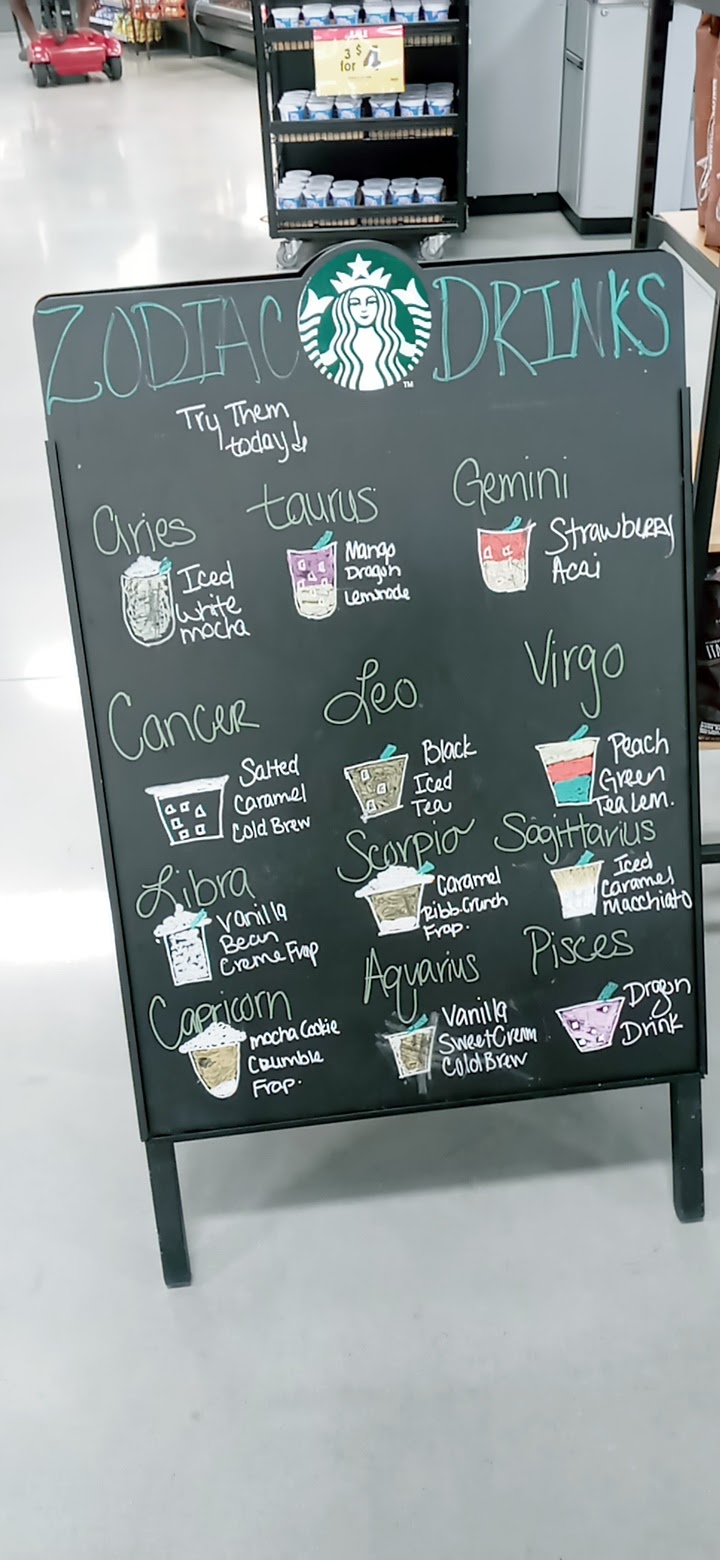 SALE
3 $
for
ZODIAC DRINKS
TM
Try Them
today!
Aries
Iced
white
mocha
taurus
Mango
Dragon
Lemonade
Gemini
Strawberry
Acai
Cancer
Salted
Caramel
Cold Brew
Leo
Black
Iced
Tea
Virgo
Peach
Green
Tea Lem.
Libra
Vanilla
Bean
Creme Frap
Scorpio
Caramel
Ribb. Crunch
Frap.
Sagittarius
Iced
Caramel
Macchiato
Capricorn
mocha Cookie
Crumble
Frap.
Aquarius
Vanilla
Sweet Cream
Cold Brew
Pisces
Dragon
Drink